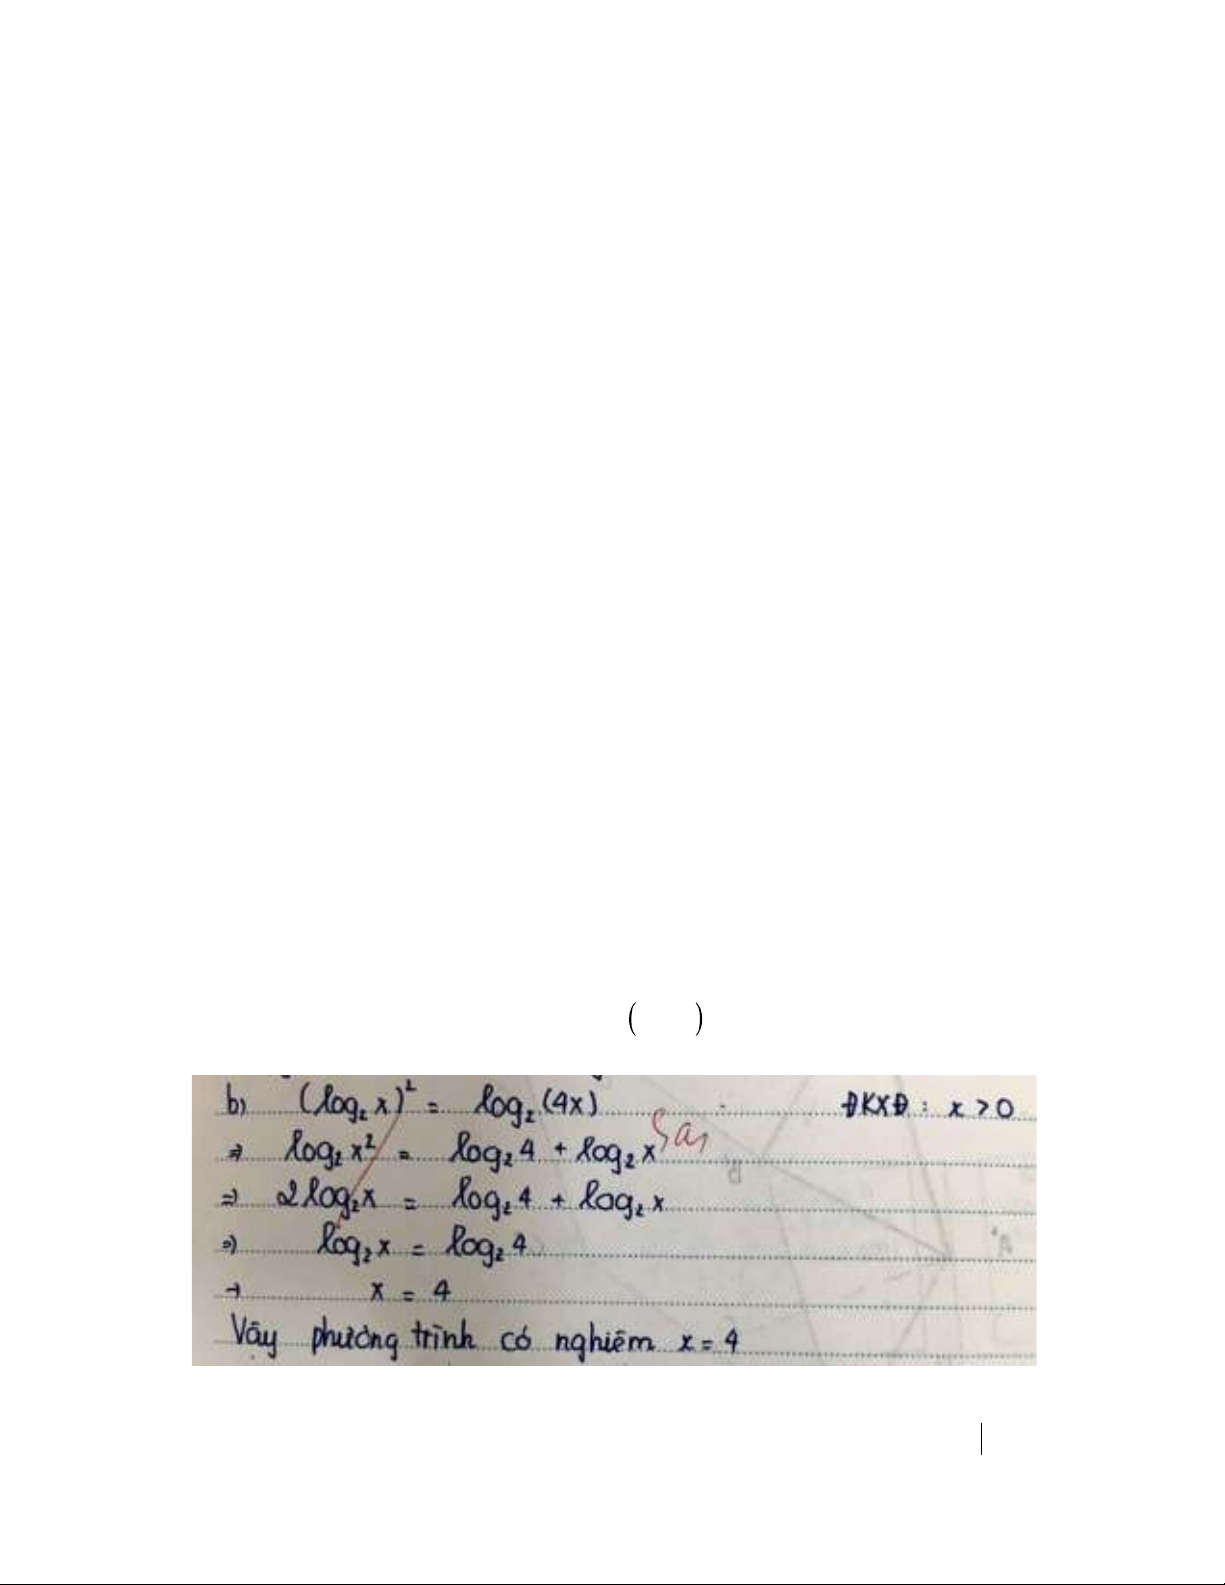 ( )
b) (log₂ x)² = log₂ (4x) ĐKXĐ : x > 0
⇒ log₂ x² = log₂ 4 + log₂ x Sai
⇒ 2log₂ x = log₂ 4 + log₂ x
⇒ log₂ x = log₂ 4
→ x = 4
Vậy phương trình có nghiệm x = 4